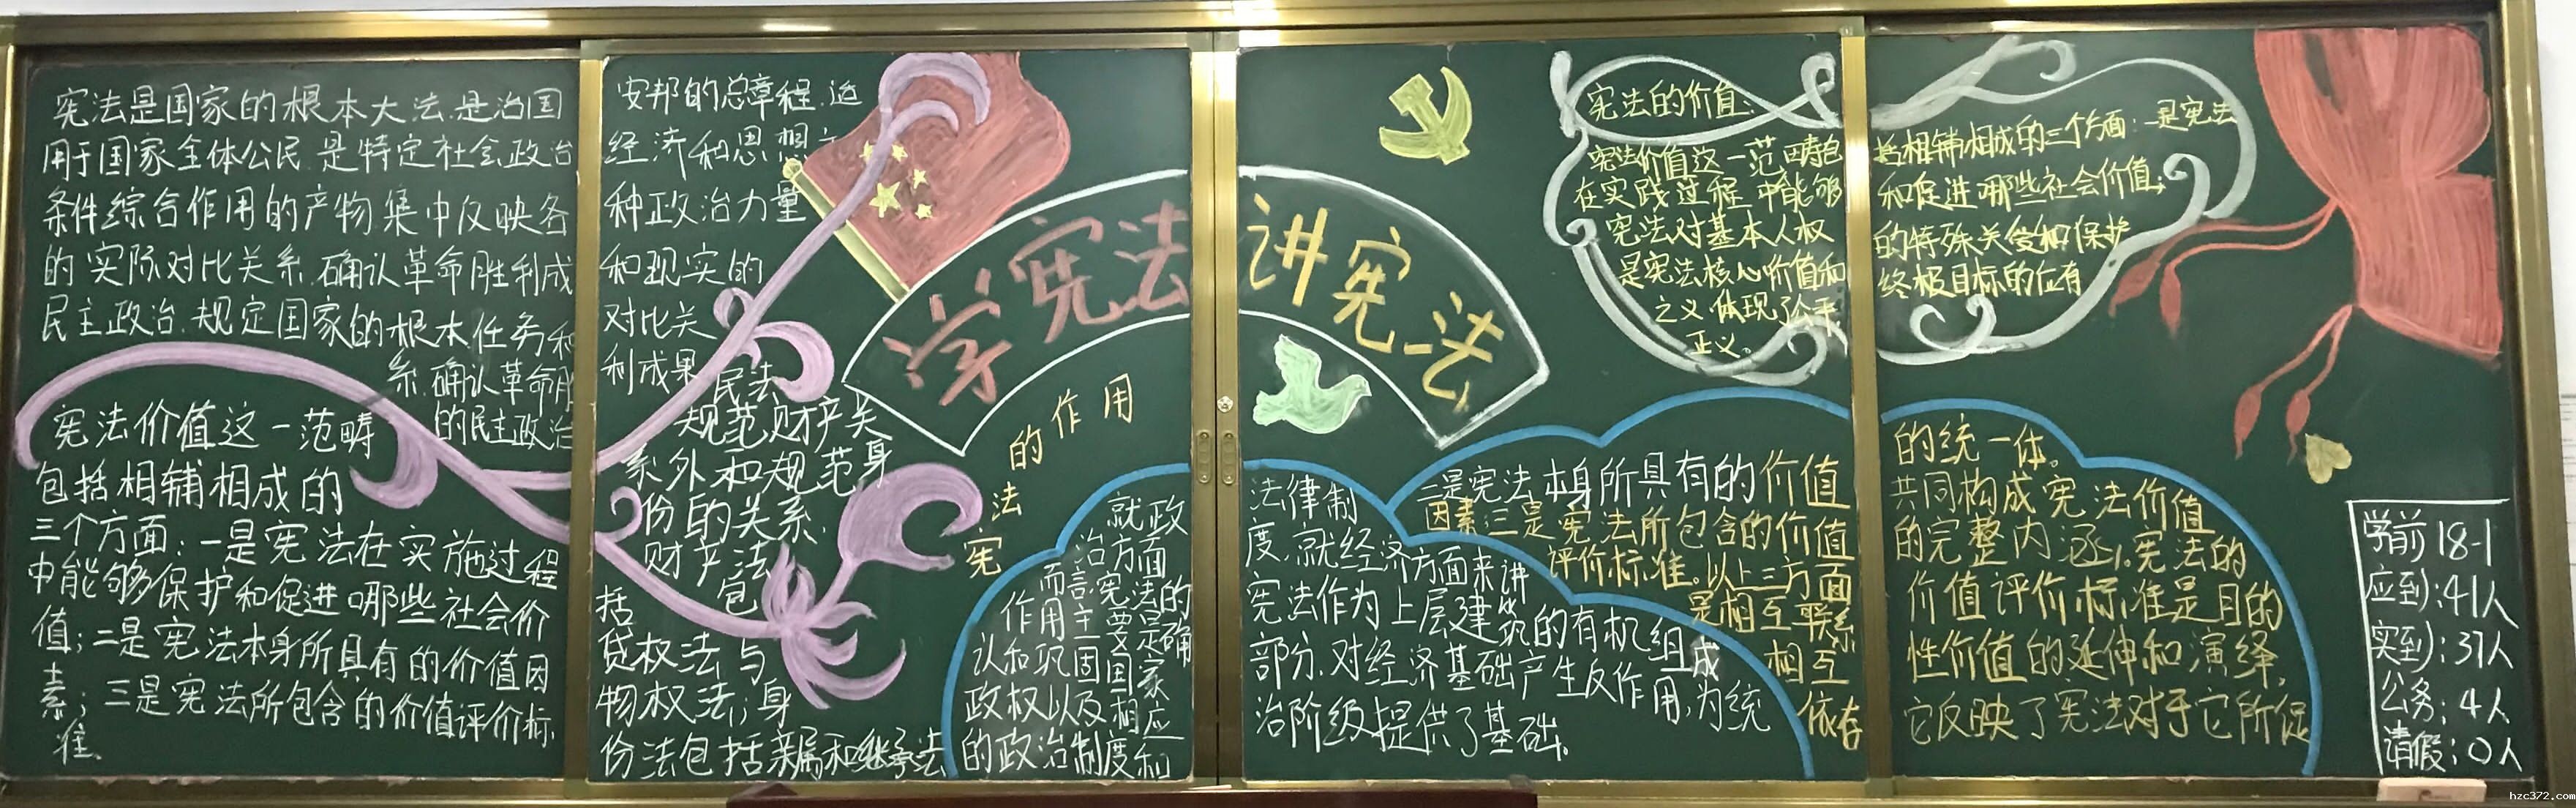 宪法是国家的根本大法.是治国
用于国家全体公民.是特定社会政治
条件综合作用的产物.集中反映各
的实际对比关系.确认革命胜利成
民主政治.规定国家的根本任务和
系.确认革命胜
的民主政治
宪法价值这一范畴
包括相辅相成的
三个方面:一是宪法在实施过程
中能够保护和促进哪些社会价
值;二是宪法本身所具有的价值因
素;三是宪法所包含的价值评价标
准.
安邦的总章程.适
经济和思想
种政治力量
和现实的
对比关
利成果
民法
规范财产关
系外和规范身
份的关系.
财产法
包
括
贷权法与
物权法;身
份法包括亲属和继承法
学宪法 讲宪法
宪法的作用
就政
治方面
而言.宪法的
作用主要是确
认和巩固国家
政权以及相应
的政治制度和
法律制
度.就经济方面来讲
宪法作为上层建筑的有机组成
部分.对经济基础产生反作用,为统
治阶级提供了基础。
宪法的价值:
宪法价值这一范畴包
在实践过程中能够
宪法对基本人权
是宪法核心价值和
之义.体现了公平
正义。
括相辅相成的三个方面:一是宪法
和促进哪些社会价值;
的特殊关爱和保护
终极目标的应有
二是宪法本身所具有的价值
因素;三是宪法所包含的价值
评价标准。以上三方面
是相互联系
相互
依存
的统一体。
共同构成宪法价值
的完整内涵.宪法的
价值评价标准是目的
性价值的延伸和演绎,
它反映了宪法对于它所促
学前18-1
应到:41人
实到:37人
公务:4人
请假:0人
hzc372.com